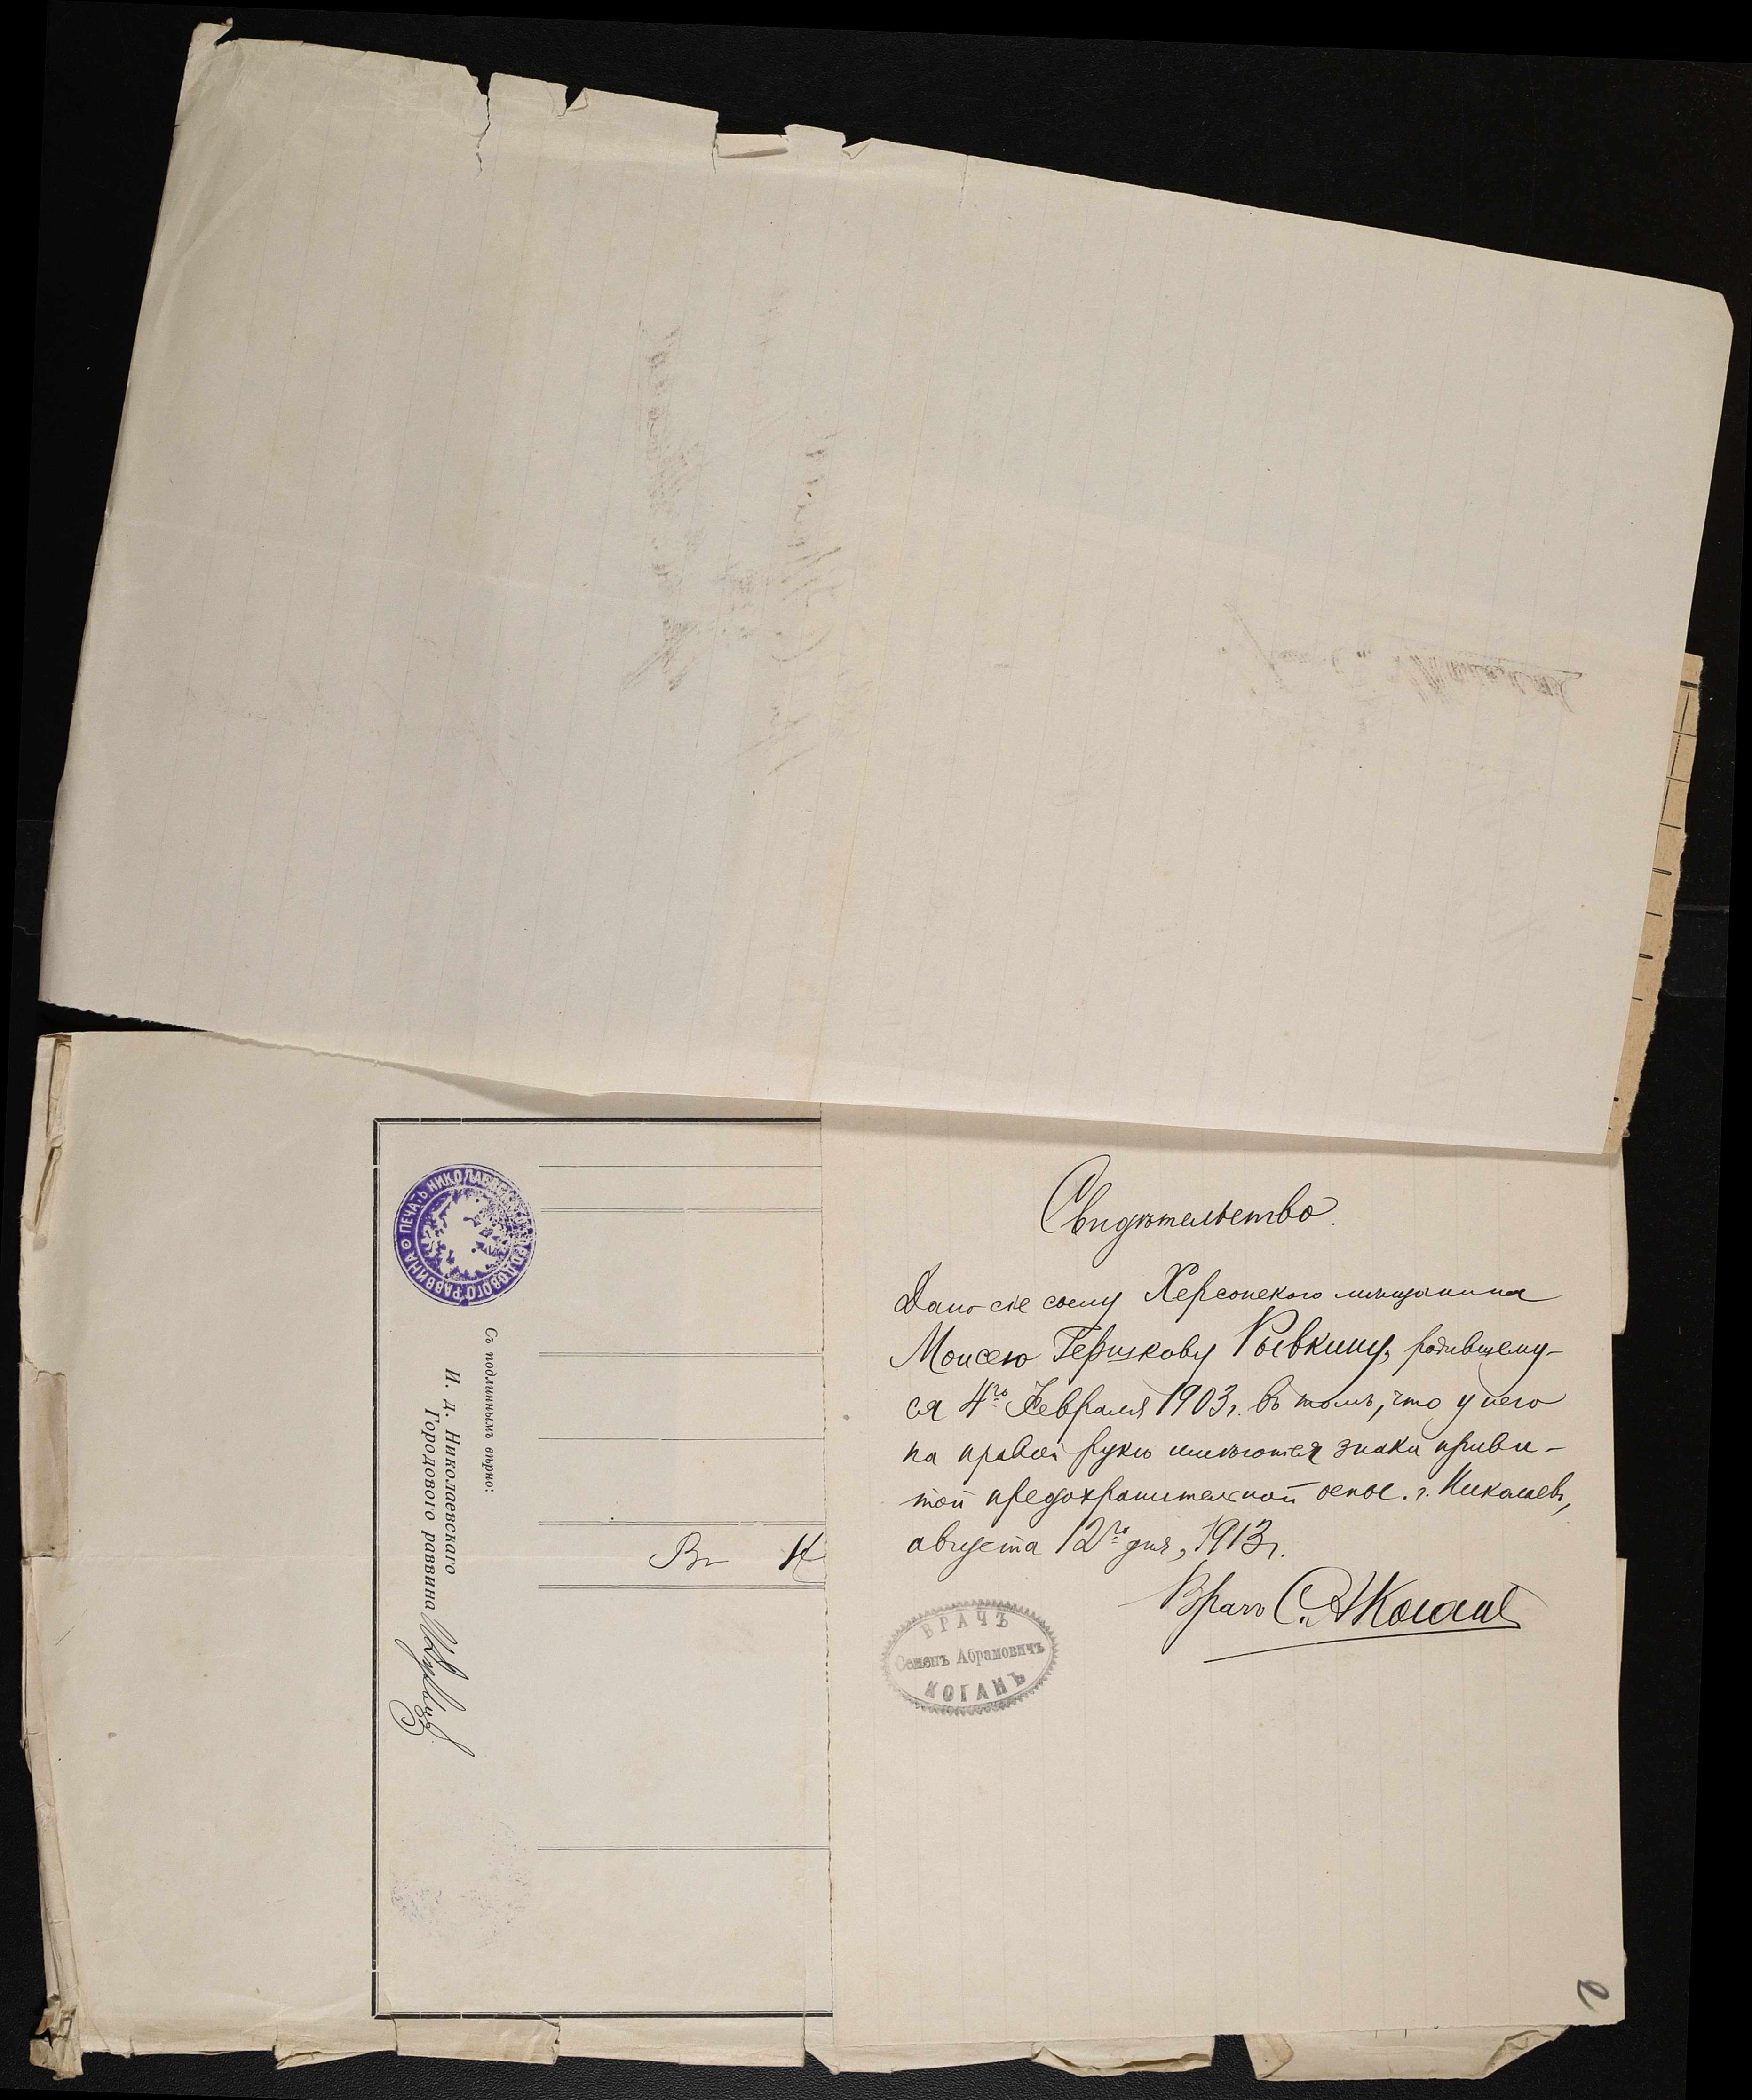 ПЕЧАТЬ НИКОЛАЕВСКАГО ГОРОДОВОГО РАВВИНА
Съ подлиннымъ вѣрно:
И. д. Николаевскаго
Городового раввина
Свидѣтельство.
Дано сіе сыну Херсонскаго мѣщанина
Моисею Гершкову Рывкину, родившему-
ся 4го Февраля 1903 г. въ томъ, что у него
на правой рукѣ имѣются знаки приви-
той предохранительной оспы. г. Николаевъ,
августа 12го дня, 1913 г.
Врачъ С. А. Коганъ
ВРАЧЪ
Семенъ Абрамовичъ
КОГАНЪ